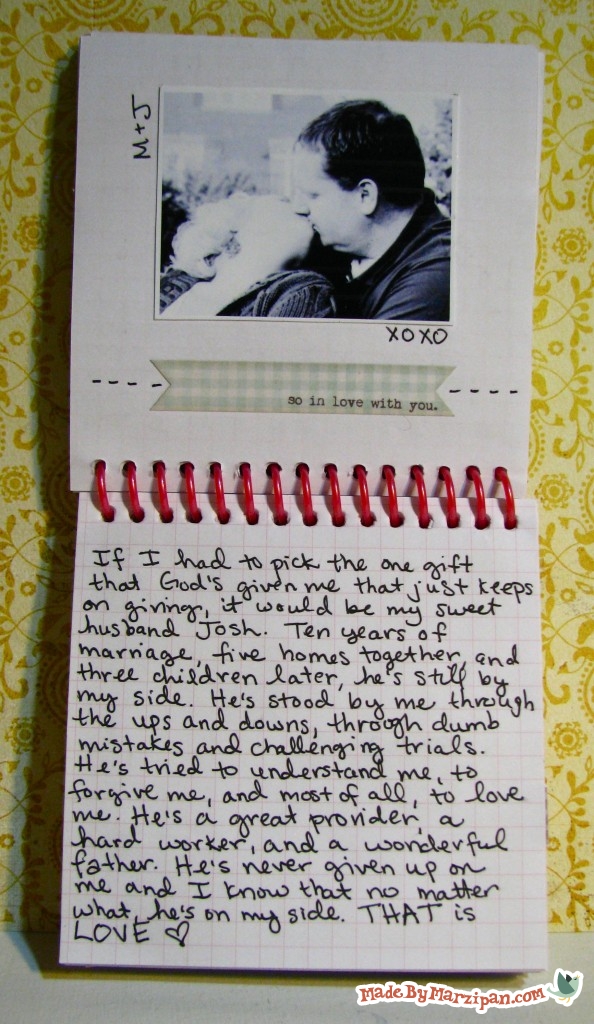 M+J
XOXO
so in love with you.
If I had to pick the one gift
that God's given me that just keeps
on giving, it would be my sweet
husband Josh. Ten years of
marriage, five homes together, and
three children later, he's still by
my side. He's stood by me through
the ups and downs, through dumb
mistakes and challenging trials.
He's tried to understand me, to
forgive me, and most of all, to love
me. He's a great provider, a
hard worker, and a wonderful
father. He's never given up on
me and I know that no matter
what, he's on my side. THAT is
LOVE ♡
MadeByMarzipan.com